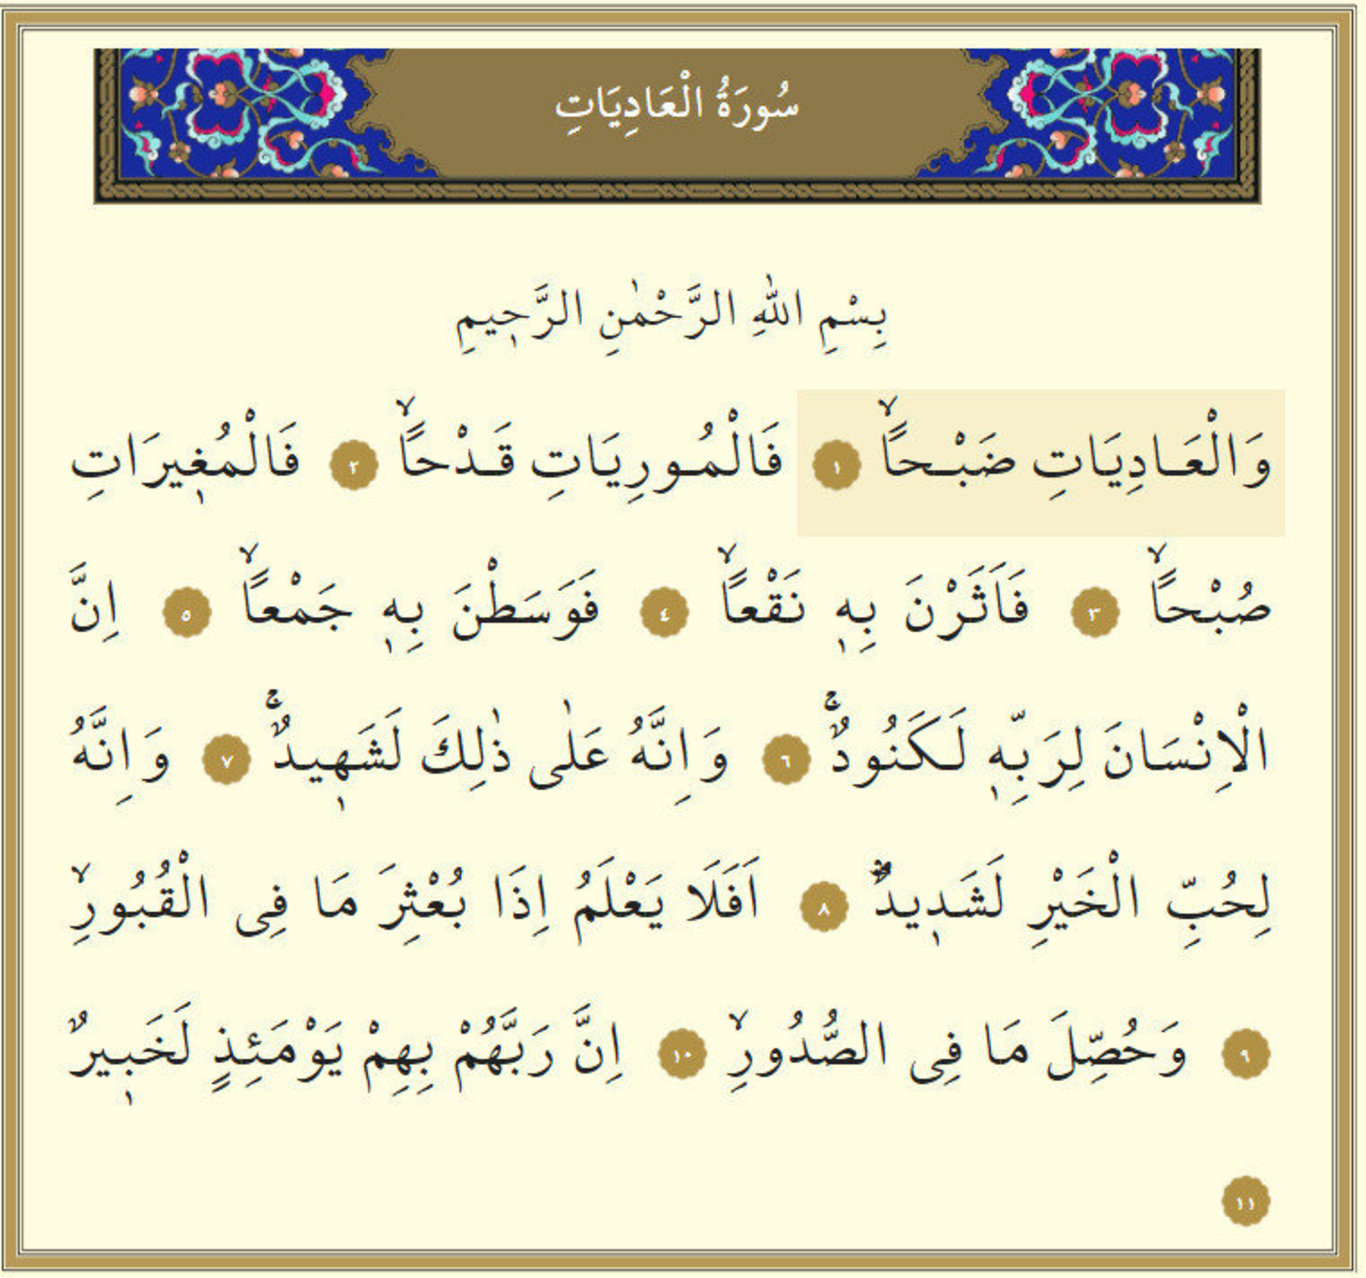 سُورَةُ الْعَادِيَاتِ
بِسْمِ اللّٰهِ الرَّحْمٰنِ الرَّح۪يمِ
وَالْعَـادِيَاتِ ضَبْـحاًۙ ١ فَالْمُـورِيَاتِ قَـدْحاًۙ ٢ فَالْمُغ۪يرَاتِ
صُبْحاًۙ ٣ فَاَثَرْنَ بِه۪ نَقْعاًۙ ٤ فَوَسَطْنَ بِه۪ جَمْعاًۙ ٥ اِنَّ
الْاِنْسَانَ لِرَبِّه۪ لَكَنُودٌۚ ٦ وَاِنَّهُ عَلٰى ذٰلِكَ لَشَه۪يدٌۚ ٧ وَاِنَّهُ
لِحُبِّ الْخَيْرِ لَشَد۪يدٌۜ ٨ اَفَلَا يَعْلَمُ اِذَا بُعْثِرَ مَا فِى الْقُبُورِۙ
٩ وَحُصِّلَ مَا فِى الصُّدُورِۙ ١٠ اِنَّ رَبَّهُمْ بِهِمْ يَوْمَئِذٍ لَخَب۪يرٌ
١١